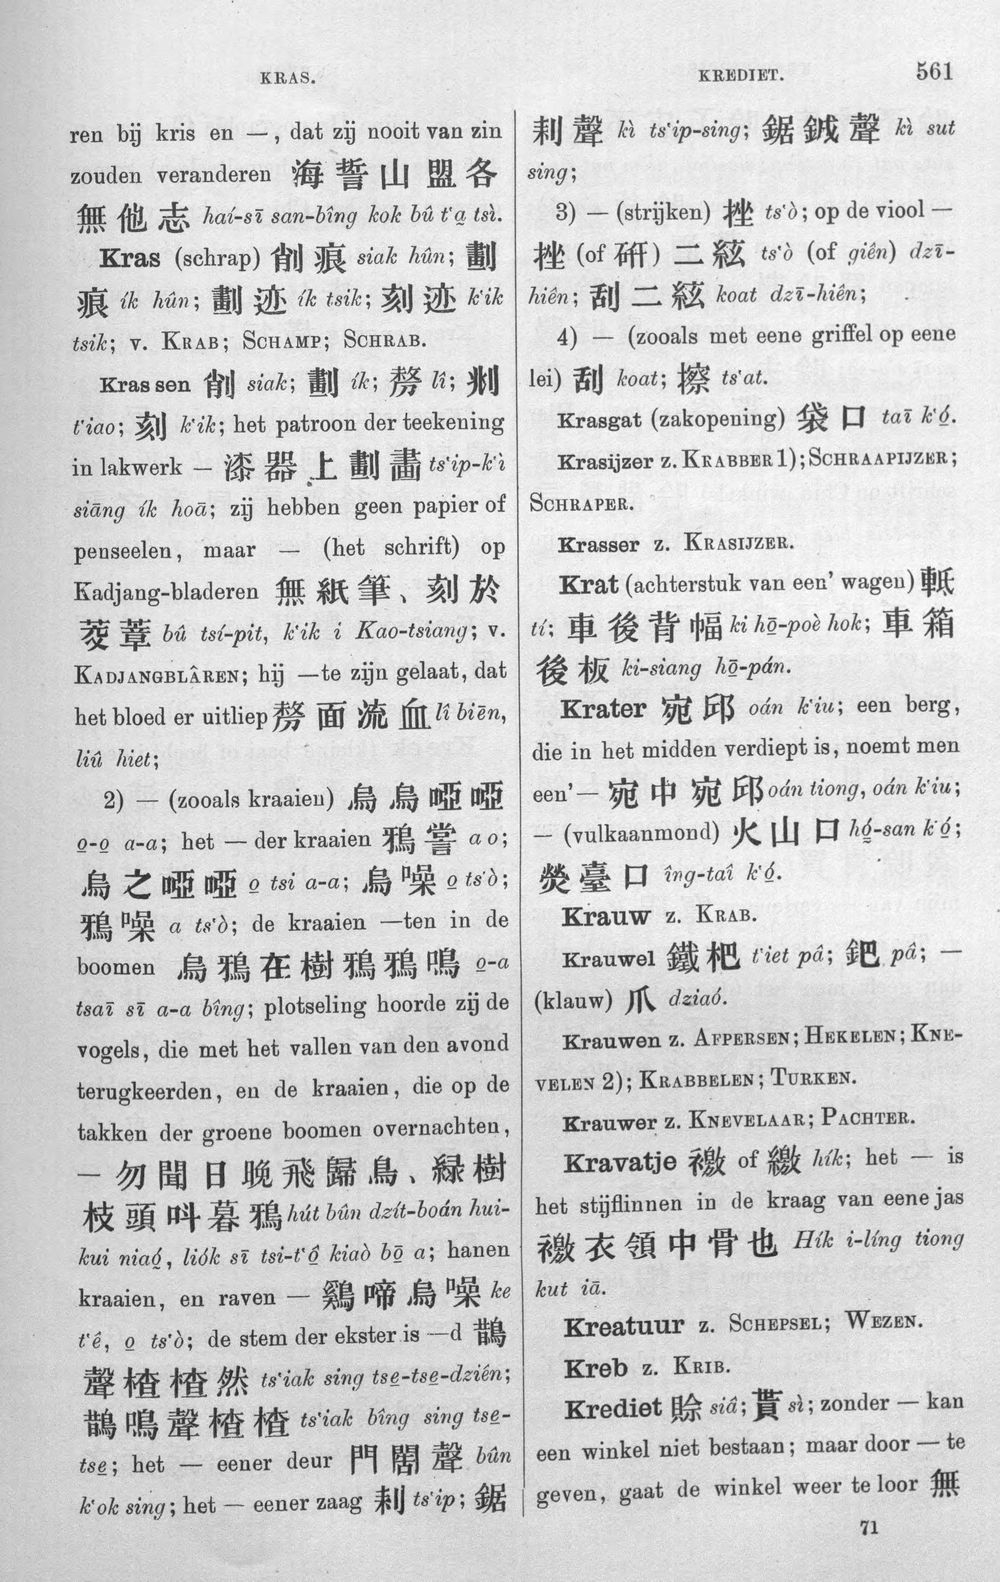 KRAS.
KREDIET.
561
ren bij kris en —, dat zij nooit van zin
zouden veranderen 海誓山盟各
無他志 haí-sī san-bîng kok bû t'a̱ tsì.
Kras (schrap) 削痕 siak hûn; 劃
痕 ík hûn; 劃迹 ík tsik; 刻迹 k'ik
tsik; v. KRAB; SCHAMP; SCHRAB.
Krassen 削 siak; 劃 ík; 剺 lî;
t'iao; 刻 k'ik; het patroon der teekening
in lakwerk — 漆器上劃畵 ts'ip-k'ì
siāng ík hoā; zij hebben geen papier of
penseelen, maar — (het schrift) op
Kadjang-bladeren 無紙筆、刻於
茭葦 bû tsí-pit, k'ik i Kao-tsiang; v.
KADJANGBLÂREN; hij —te zijn gelaat, dat
het bloed er uitliep 剺面流血 lî biēn,
liû hiet;
2) — (zooals kraaien) 烏烏啞啞
o̱-o̱ a-a; het — der kraaien 鴉 a o;
烏之啞啞 o̱ tsi a-a; 烏噪 o̱ ts'ò;
鴉噪 a ts'ò; de kraaien —ten in de
boomen 烏鴉在樹鴉鴉鳴 o̱-a
tsaī sī a-a bîng; plotseling hoorde zij de
vogels, die met het vallen van den avond
terugkeerden, en de kraaien, die op de
takken der groene boomen overnachten,
— 勿聞日晚飛歸鳥、緑樹
枝頭叫暮鴉 hút bûn dzít-boán hui-
kui niaó, liók sī tsi-t'ô̱ kiaò bō̱ a; hanen
kraaien, en raven — 鷄啼烏噪 ke
t'ê, o̱ ts'ò; de stem der ekster is —d 鵲
聲楂楂然 ts'iak sing tse̱-tse̱-dzién;
鵲鳴聲楂楂 ts'iak bîng sing tse̱-
tse̱; het — eener deur 門闊聲 bûn
k'ok sing; het — eener zaag 刺 ts'ip; 鋸
刺聲 kì ts'ip-sing; 鋸鉞聲 kì sut
sing;
3) — (strijken) 挫 ts'ò; op de viool —
挫 (of 硏) 二絃 ts'ò (of giên) dzī-
hiên; 刮二絃 koat dzī-hiên;
4) — (zooals met eene griffel op eene
lei) 刮 koat; 擦 ts'at.
Krasgat (zakopening) 袋口 taī k'ó̱.
Krasijzer z. KRABBER 1); SCHRAAPIJZER;
SCHRAPER.
Krasser z. KRASIJZER.
Krat (achterstuk van een' wagen) 軧
tí; 車後背幅 ki hō̱-poè hok; 車箱
後板 ki-siang hō̱-pán.
Krater 宛邱 oán k'iu; een berg,
die in het midden verdiept is, noemt men
een' — 宛中宛邱 oán tiong, oán k'iu;
— (vulkaanmond) 火山口 hó̱-san k'ó̱;
熒臺口 îng-taî k'ó̱.
Krauw z. KRAB.
Krauwel 鐵杷 t'iet pâ; 鈀 pâ; —
(klauw) 爪 dziaó.
Krauwen z. AFPERSEN; HEKELEN; KNE-
VELEN 2); KRABBELEN; TURKEN.
Krauwer z. KNEVELAAR; PACHTER.
Kravatje 襒 of 繳 hík; het — is
het stijflinnen in de kraag van eene jas
衣領中骨也 Hík i-líng tiong
kut iā.
Kreatuur z. SCHEPSEL; WEZEN.
Kreb z. KRIB.
Krediet 賒 siâ; 貰 sì; zonder — kan
een winkel niet bestaan; maar door — te
geven, gaat de winkel weer te loor 無
71